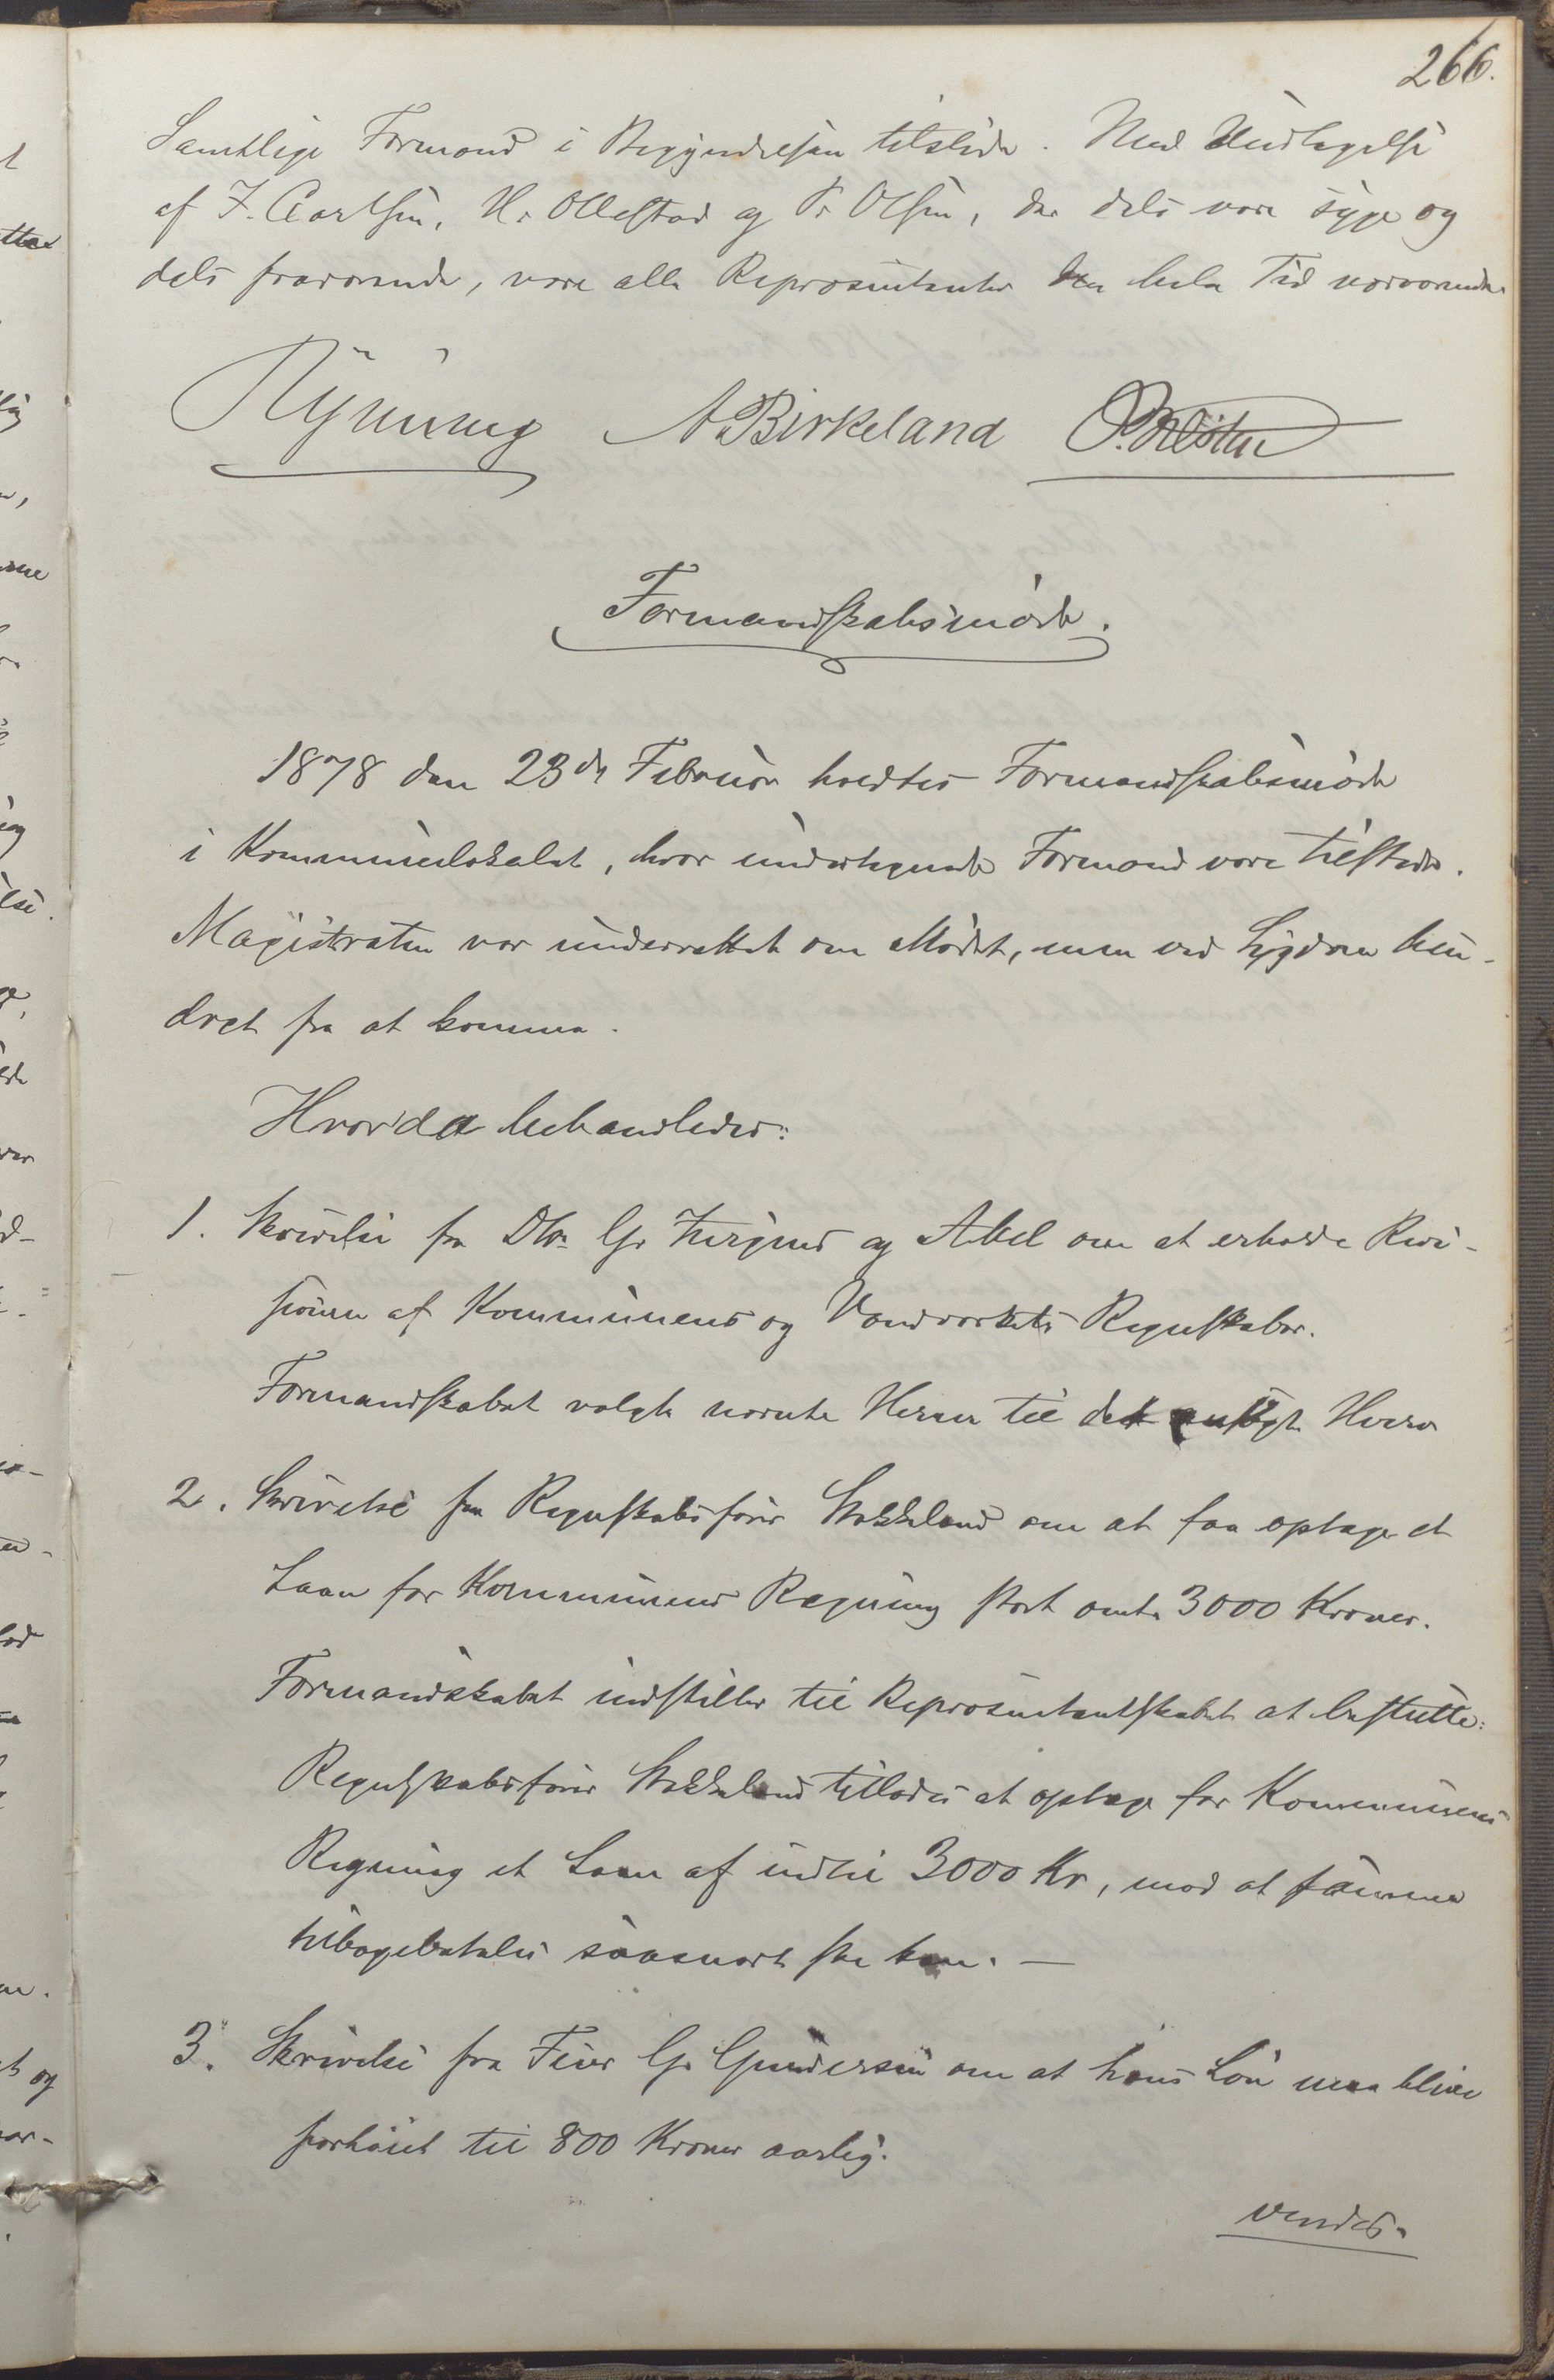 266.
Samtlige Formænd i Begyndelsen tilstede. Med Undtagelse
af J. Carlsen, H. Ollestad og P. Olsen, der dels vare syge og
dels fraværende, vare alle Repræsentanter den hele Tid nærværende.
Nyning A Birkeland
Formandskabsmøde.
1878 den 23de Februar holdtes Formandskabsmøde
i Kommunelokalet, hvor undertegnede Formænd vare tilstede.
Magistraten var underrettet om Mødet, men ved Sygdom hin-
dret fra at komme.
Hvorda behandledes:
1. Skrivelse fra Dhr. G. og Abel om at erholde Revi-
sionen af Kommunens og Vandværkets Regnskaber.
Formandskabet valgte nævnte Herrer til det ansøgte Hverv
2. Skrivelse fra Regnskabsfører Stokkeland om at faa optage et
Laan for Kommunens Regning stort omtr. 3000 Kroner.
Formandskabet indstiller til Repræsentantskabet at beslutte:
Regnskabsfører Stokkeland tillades at optage for Kommunens
Regning et Laan af indtil 3000 Kr, mod at samme
tilbagebetales saasnart ske kan. —
3. Skrivelse fra Feier G. Gundersen om at hans Løn maa blive
forhøiet til 800 Kroner aarlig.
vendes.